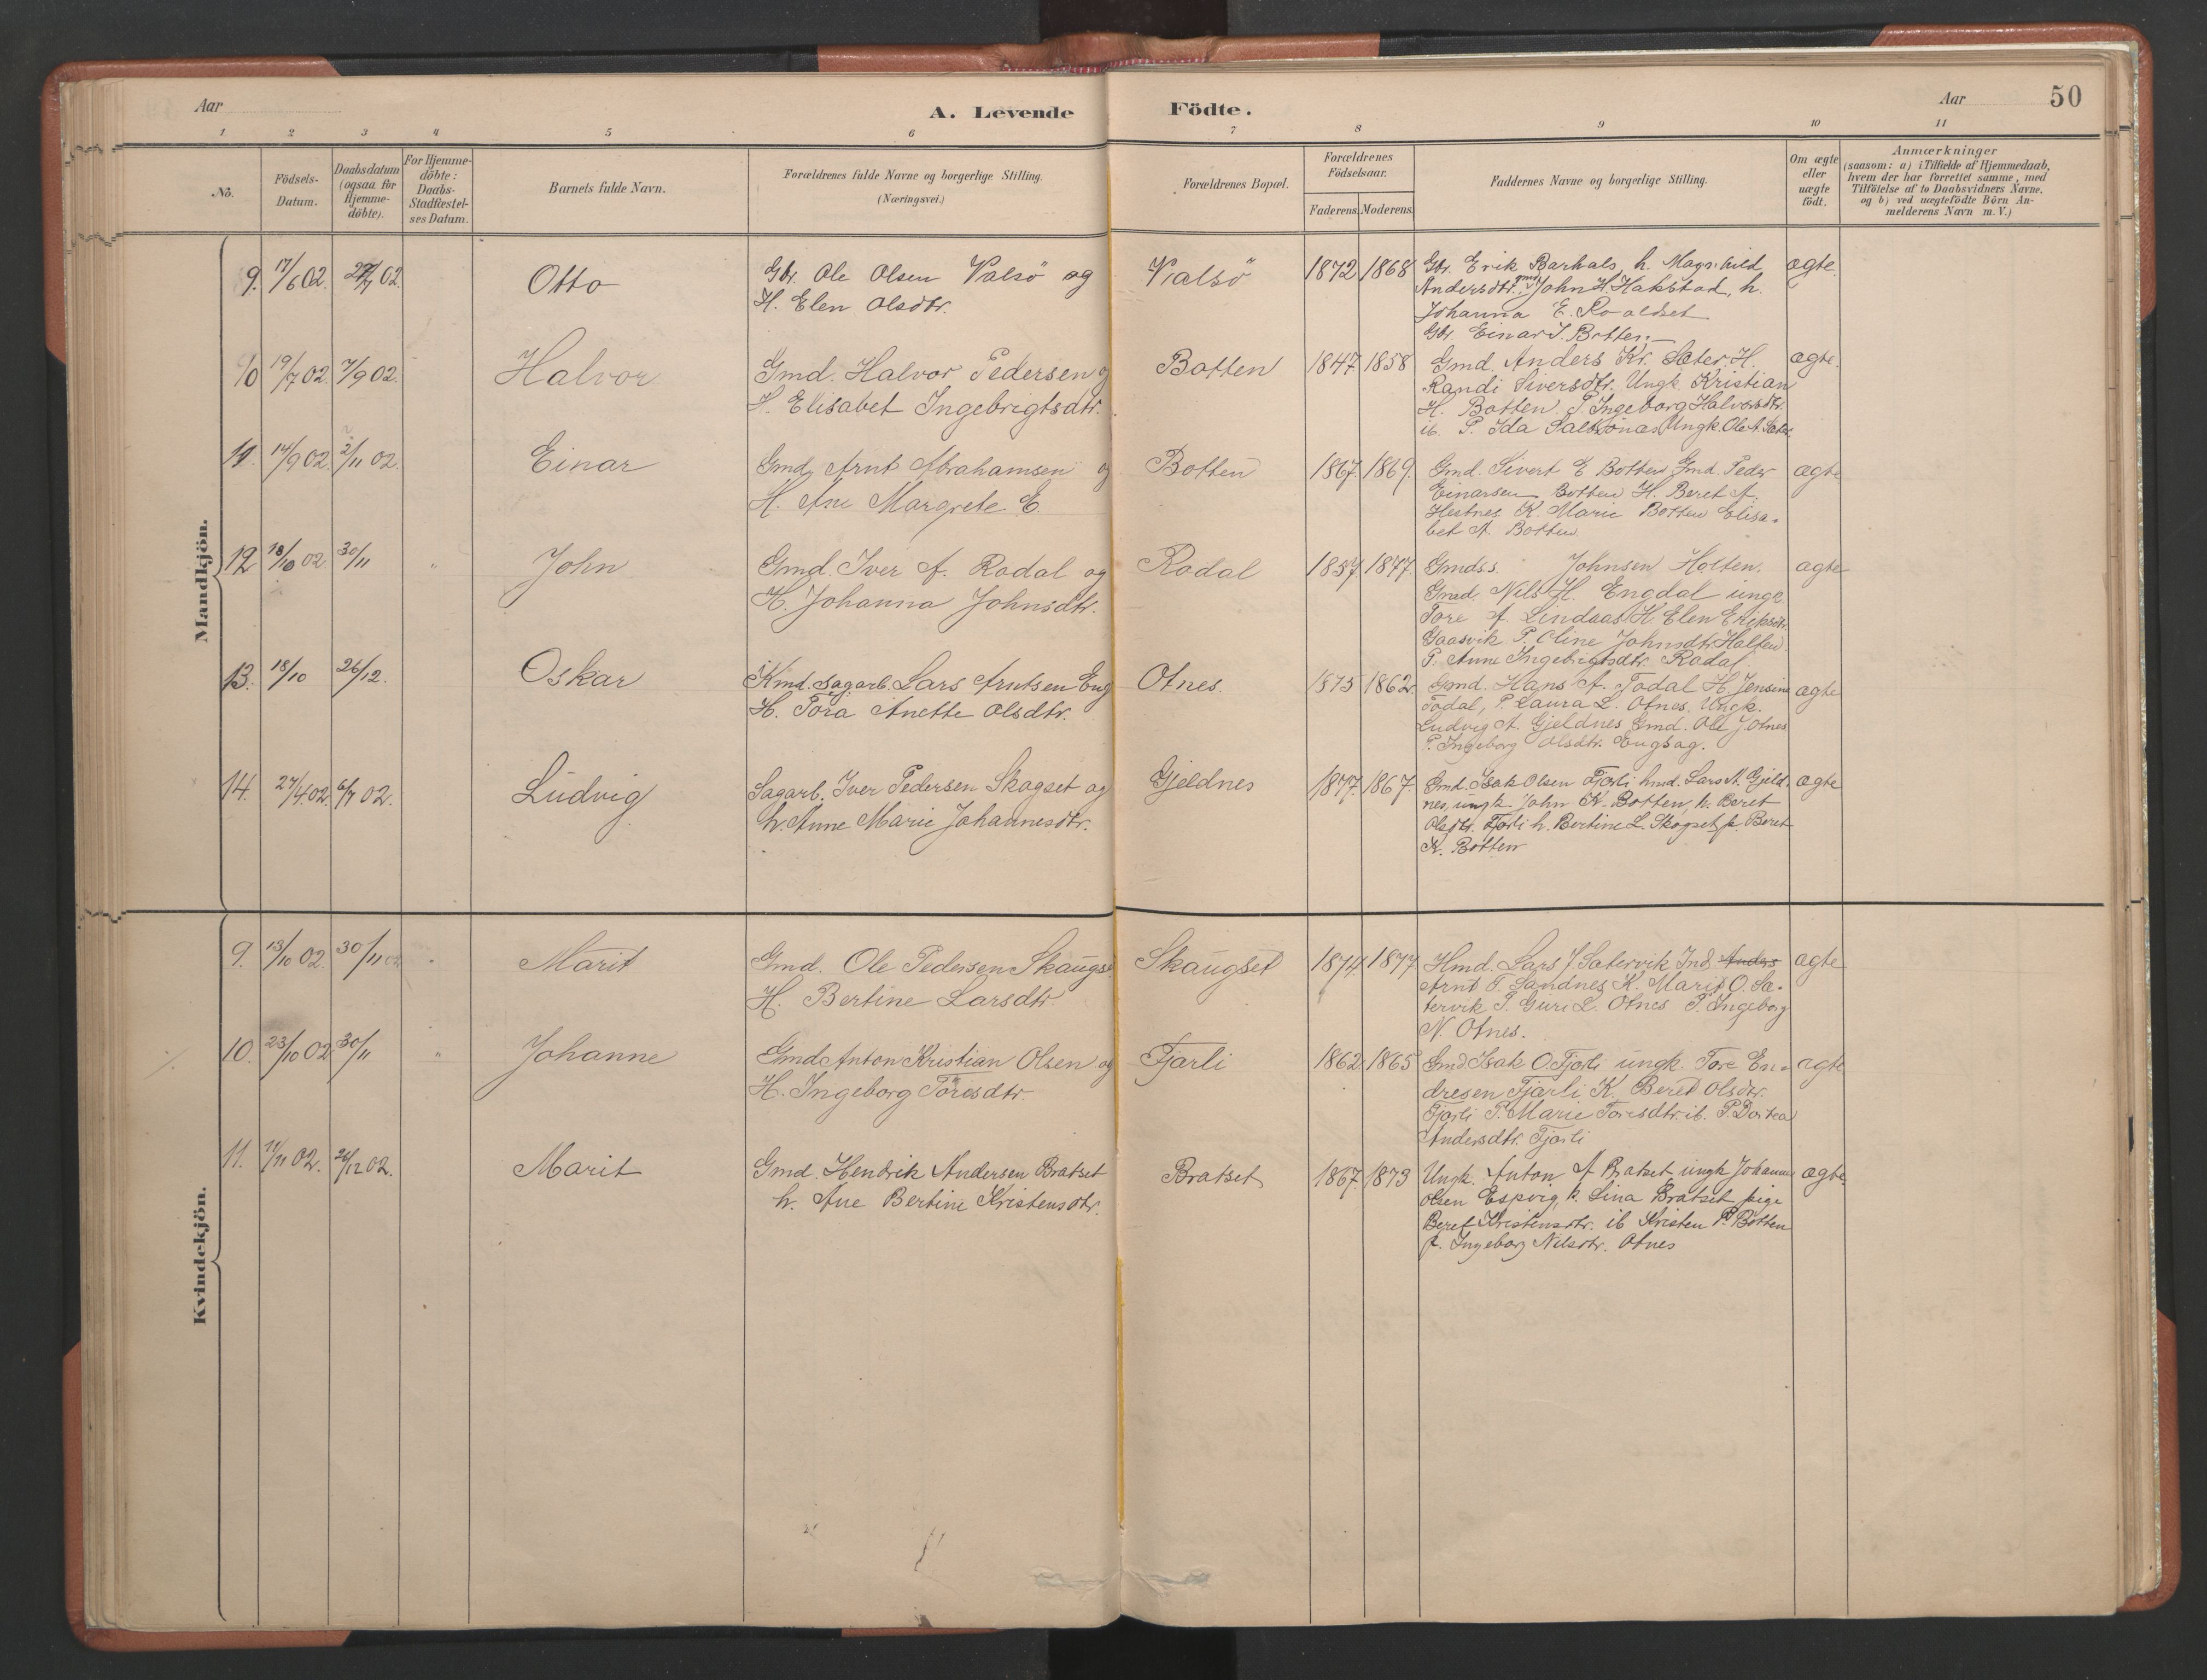 Aar
A. Levende Födte.
Aar
50
1 2 3 4 5 6 7 8 9 10 11
No.
Födsels-Datum.
Daabsdatum (ogsaa for Hjemme-döbte).
For Hjemme-döbte: Daabs-Stadfæstel-ses Datum.
Barnets fulde Navn.
Forældrenes fulde Navne og borgerlige Stilling.
(Næringsvei.)
Forældrenes Bopæl.
Forældrenes Födselsaar.
Faderens. Moderens.
Faddernes Navne og borgerlige Stilling.
Om ægte eller uægte födt.
Anmærkninger
(saasom: a) i Tilfælde af Hjemmedaab,
hvem der har forrettet samme, med
Tilföielse af to Daabsvidners Navne,
og b) ved uægtefödte Börn An-
melderens Navn m. V.)
Mandkjön.
9. 17/6 02. 02 Otto
Gbr. Ole Olsen Valsö og
H. Elen Olsdtr.
Valsö 1872 1868
Gbr. Erik Barhals, h. Magnhild
Andersdtr. gmd John H. Hakstad, h.
Johanna E. Roaldset
Gbr. Einar I. Botten
ægte.
10 19/7 02. 7/9 02. Halvor
Gmd. Halvor Pedersen og
H. Elisabet Ingebrigtsdtr.
Botten 1847 1858
Gmd. Anders Kr. Sæter H.
Randi Siversdtr. Ungk. Kristian
H. Botten. P. Ingeborg Halvorsdtr.
ib. P. Ida Ungk. Ole A. Sæter
ægte.
11. 14/9 02. 2/11 02. Einar
Gmd. Arnt Abrahamsen og
H. Ane Margrete E.
Botten 1867. 1869.
Gmd. Sivert E Botten Gmd. Peder
Einarsen Botten H. Beret A.
Hestnes K. Marie Botten Elisa-
bet A. Botten
ægte
12 18/10 02 30/11 " John
Gmd. Iver A. Rodal og
H. Johanna Johnsdtr.
Rodal 1857 1877.
Gmdss. Johnsen Holten.
Gmd. Nils H. Engdal ungk.
Tore A. Lindaas K. Elen Eriksdtr.
Gaasvik P. Oline Johnsdtr. Halten
P. Anne Ingebrigtsdtr. Rodal.
ægte
13. 18/10 26/12. Oskar
Kmd. sagarb. Lars Arntsen Eng
H. Tora Anette Olsdtr.
Otnes. 1875 1862.
Gmd. Hans A. Todal H. Jensine
Todal, P. Laura L. Otnes. Ungk.
Ludvig A. Gjeldnes Gmd. Ole J. Otnes
P. Ingeborg Olsdtr. Engsag.
ægte
14. 27/4 02. 6/7 02. Ludvig
Sagarb. Iver Pedersen Skogset og
h. Anne Marie Johannesdtr.
Gjeldnes 1877. 1867.
Gmd. Isak Olsen Fjærli hmd. Lars N. Gjeld-
nes, ungk John K. Botten, k. Beret
Olsdtr. Fjærli h. Bertine L. Skogset p. Beret
K. Botten
ægte
Kvindekjön.
9. 13/10 02. 30/11 02 " Marit
Gmd. Ole Pedersen Skaugset
H. Bertine Larsdtr
Skaugset 1874. 1877
Hmd. Lars J. Sætervik Ind. Anders
Arnt T. Sandnes K. Marit O. Sæ-
tervik P. Guri L. Otnes P. Ingeborg
N. Otnes.
ægte
10. 23/10 02 30/11 " Johanne
Gmd Anton Kristian Olsen og
H. Ingeborg Toresdtr.
Fjærli 1862. 1865
Gmd Isak O. Fjærli ungk. Tore En-
dresen Fjærli K. Beret Olsdtr.
Fjærli P. Marie Toresdtr. ib. P. Dortea
Andersdtr. Fjærli
ægte
11. 11/11 02. 26/12 02. Marit
Gmd. Hendrik Andersen Bratset
h. Ane Bertine Kristensdtr.
Bratset 1867. 1873
Ungk. Anton A Bratset ungk Johannes
Olsen Espvig, k. Lina Bratset pige
Beret Kristensdtr. ib Kristen P. Botten
p. Ingeborg Nilsdtr. Otnes
ægte.